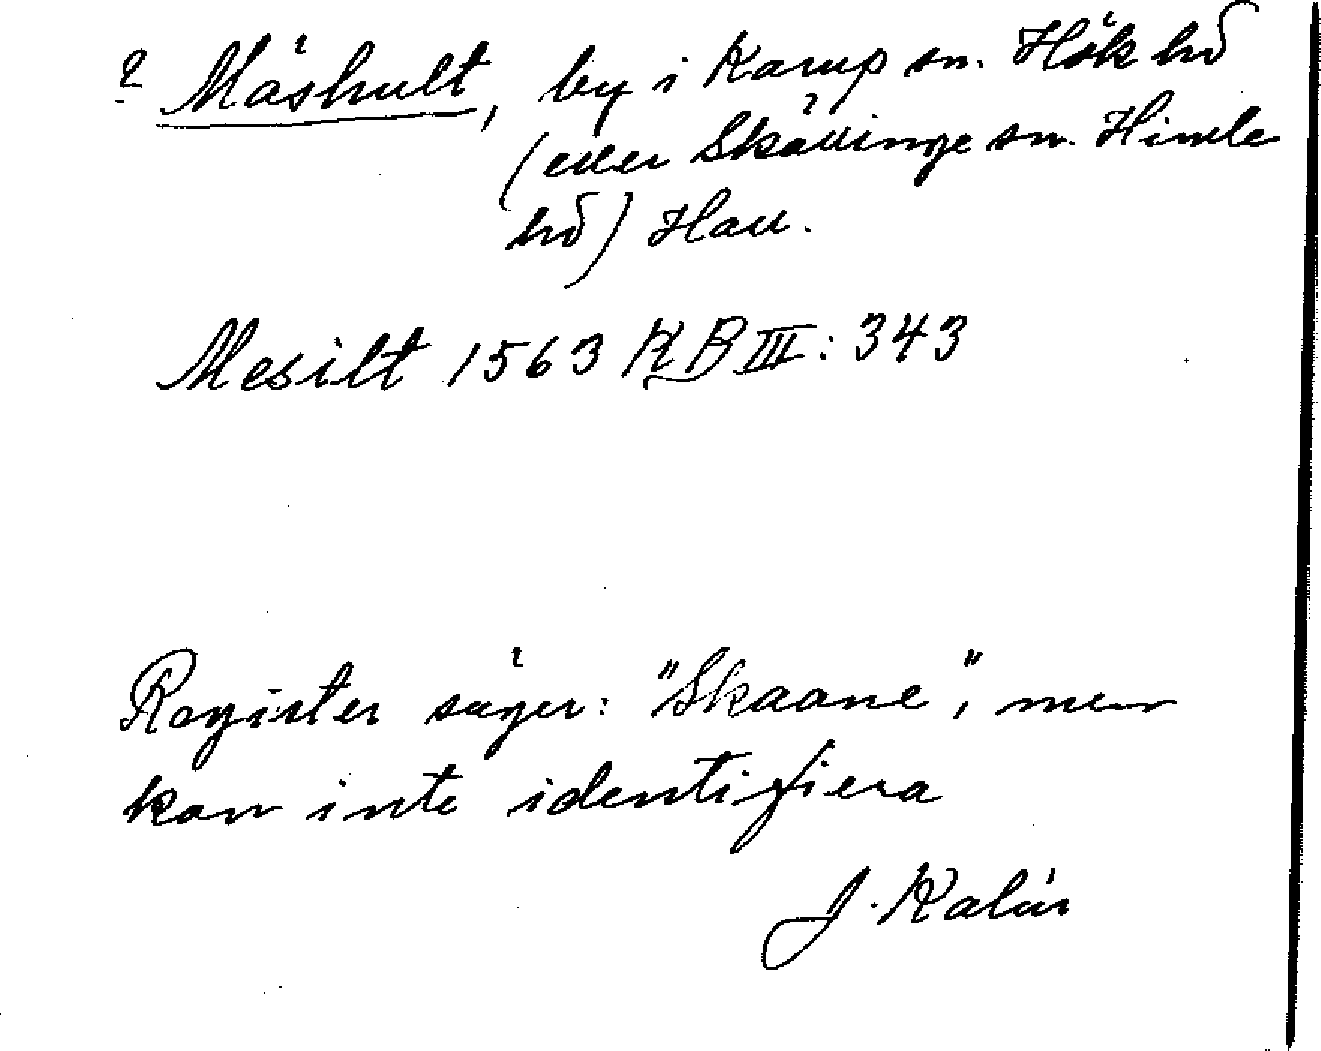 ? Mäshult, by i Karup sn. Hök hd
(eller Skällinge sn. Himle
hd) Hall.
Mesilt 1563 KB III: 343
Register säger: "Skaane", men
kan inte identifiera
J. Kalén